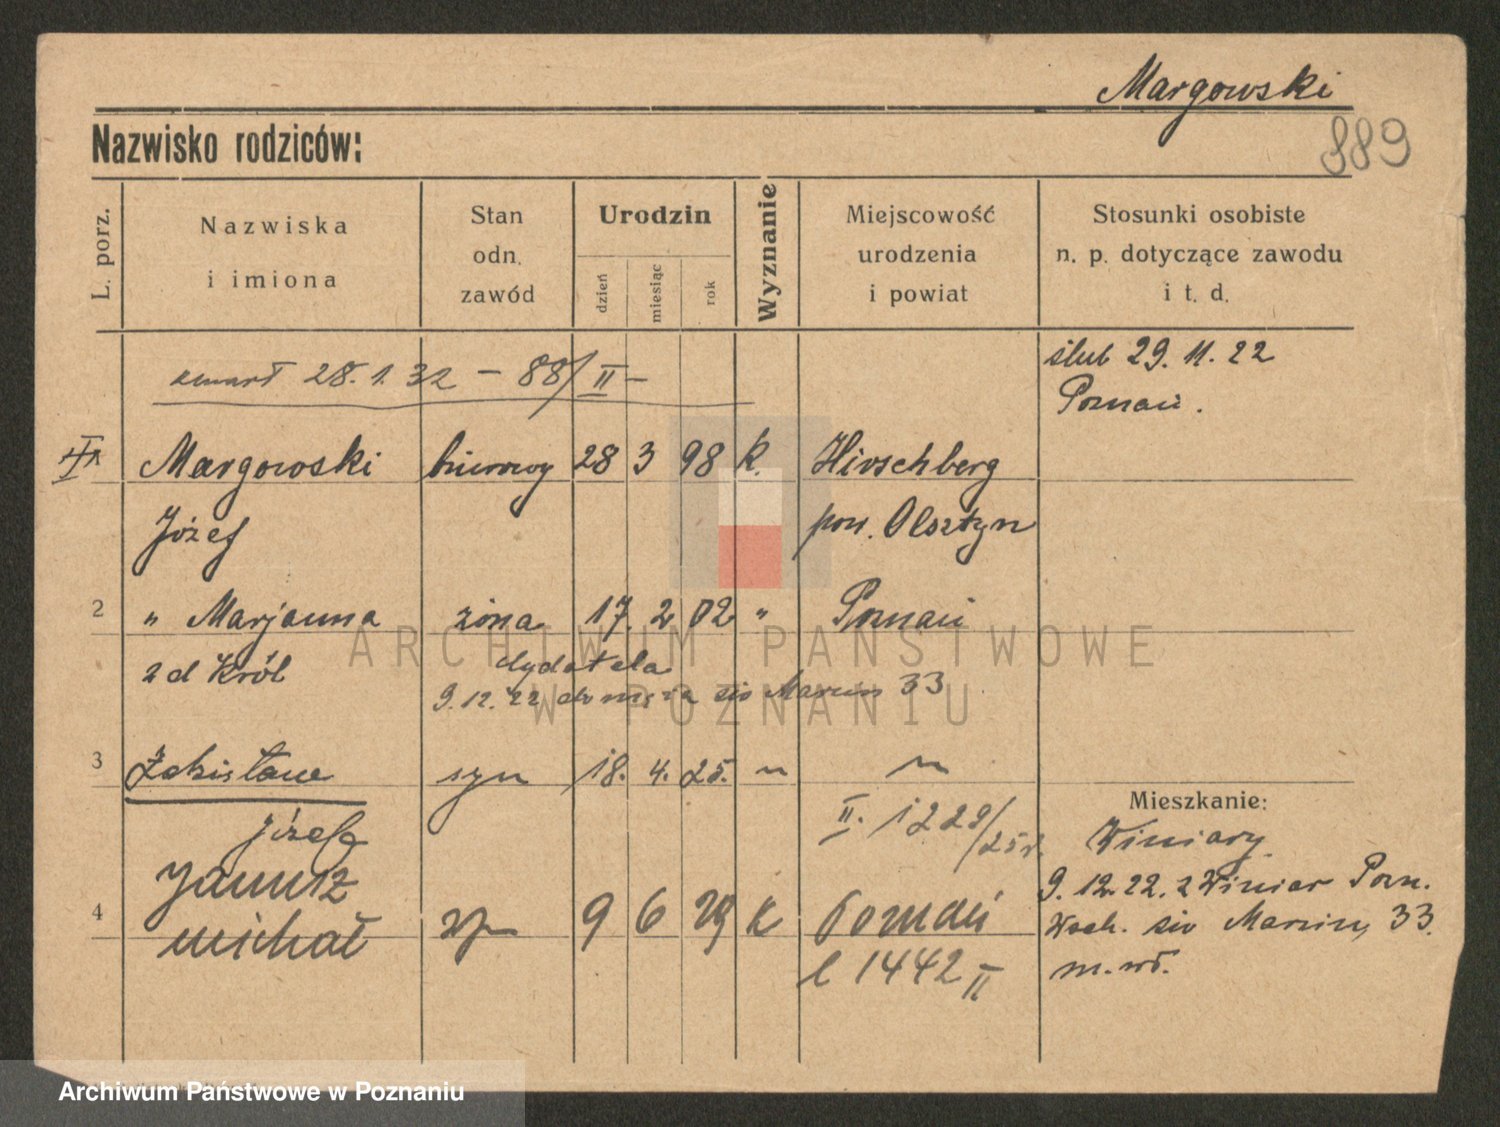 Margowski
889
Nazwisko rodziców:
L. porz.
Nazwiska
i imiona
Stan
odn.
zawód
Urodzin
dzień
miesiąc
rok
Wyznanie
Miejscowość
urodzenia
i powiat
Stosunki osobiste
n. p. dotyczące zawodu
i t. d.
ślub 29. 11. 22
Poznań.
zmarł 28. 1. 32 - 88/II -
Margowski biurowy 28 3 98 k. Hirschberg
Józef pow. Olsztyn
2 " Marjanna żona 17. 2 02 " Poznań
zd Król
9. 12. 22 do męża św Marcin 33
3 Zdzisław syn 18. 4. 25. " "
Józef
II. 1229/25r.
Mieszkanie:
Winiary
9. 12. 22. z Winiar Pozn.
Wsch. św Marcin 33.
Janusz
4 Michał syn 9 6 29 k Poznań
l 1442 II
ARCHIWUM PAŃSTWOWE
W POZNANIU
Archiwum Państwowe w Poznaniu